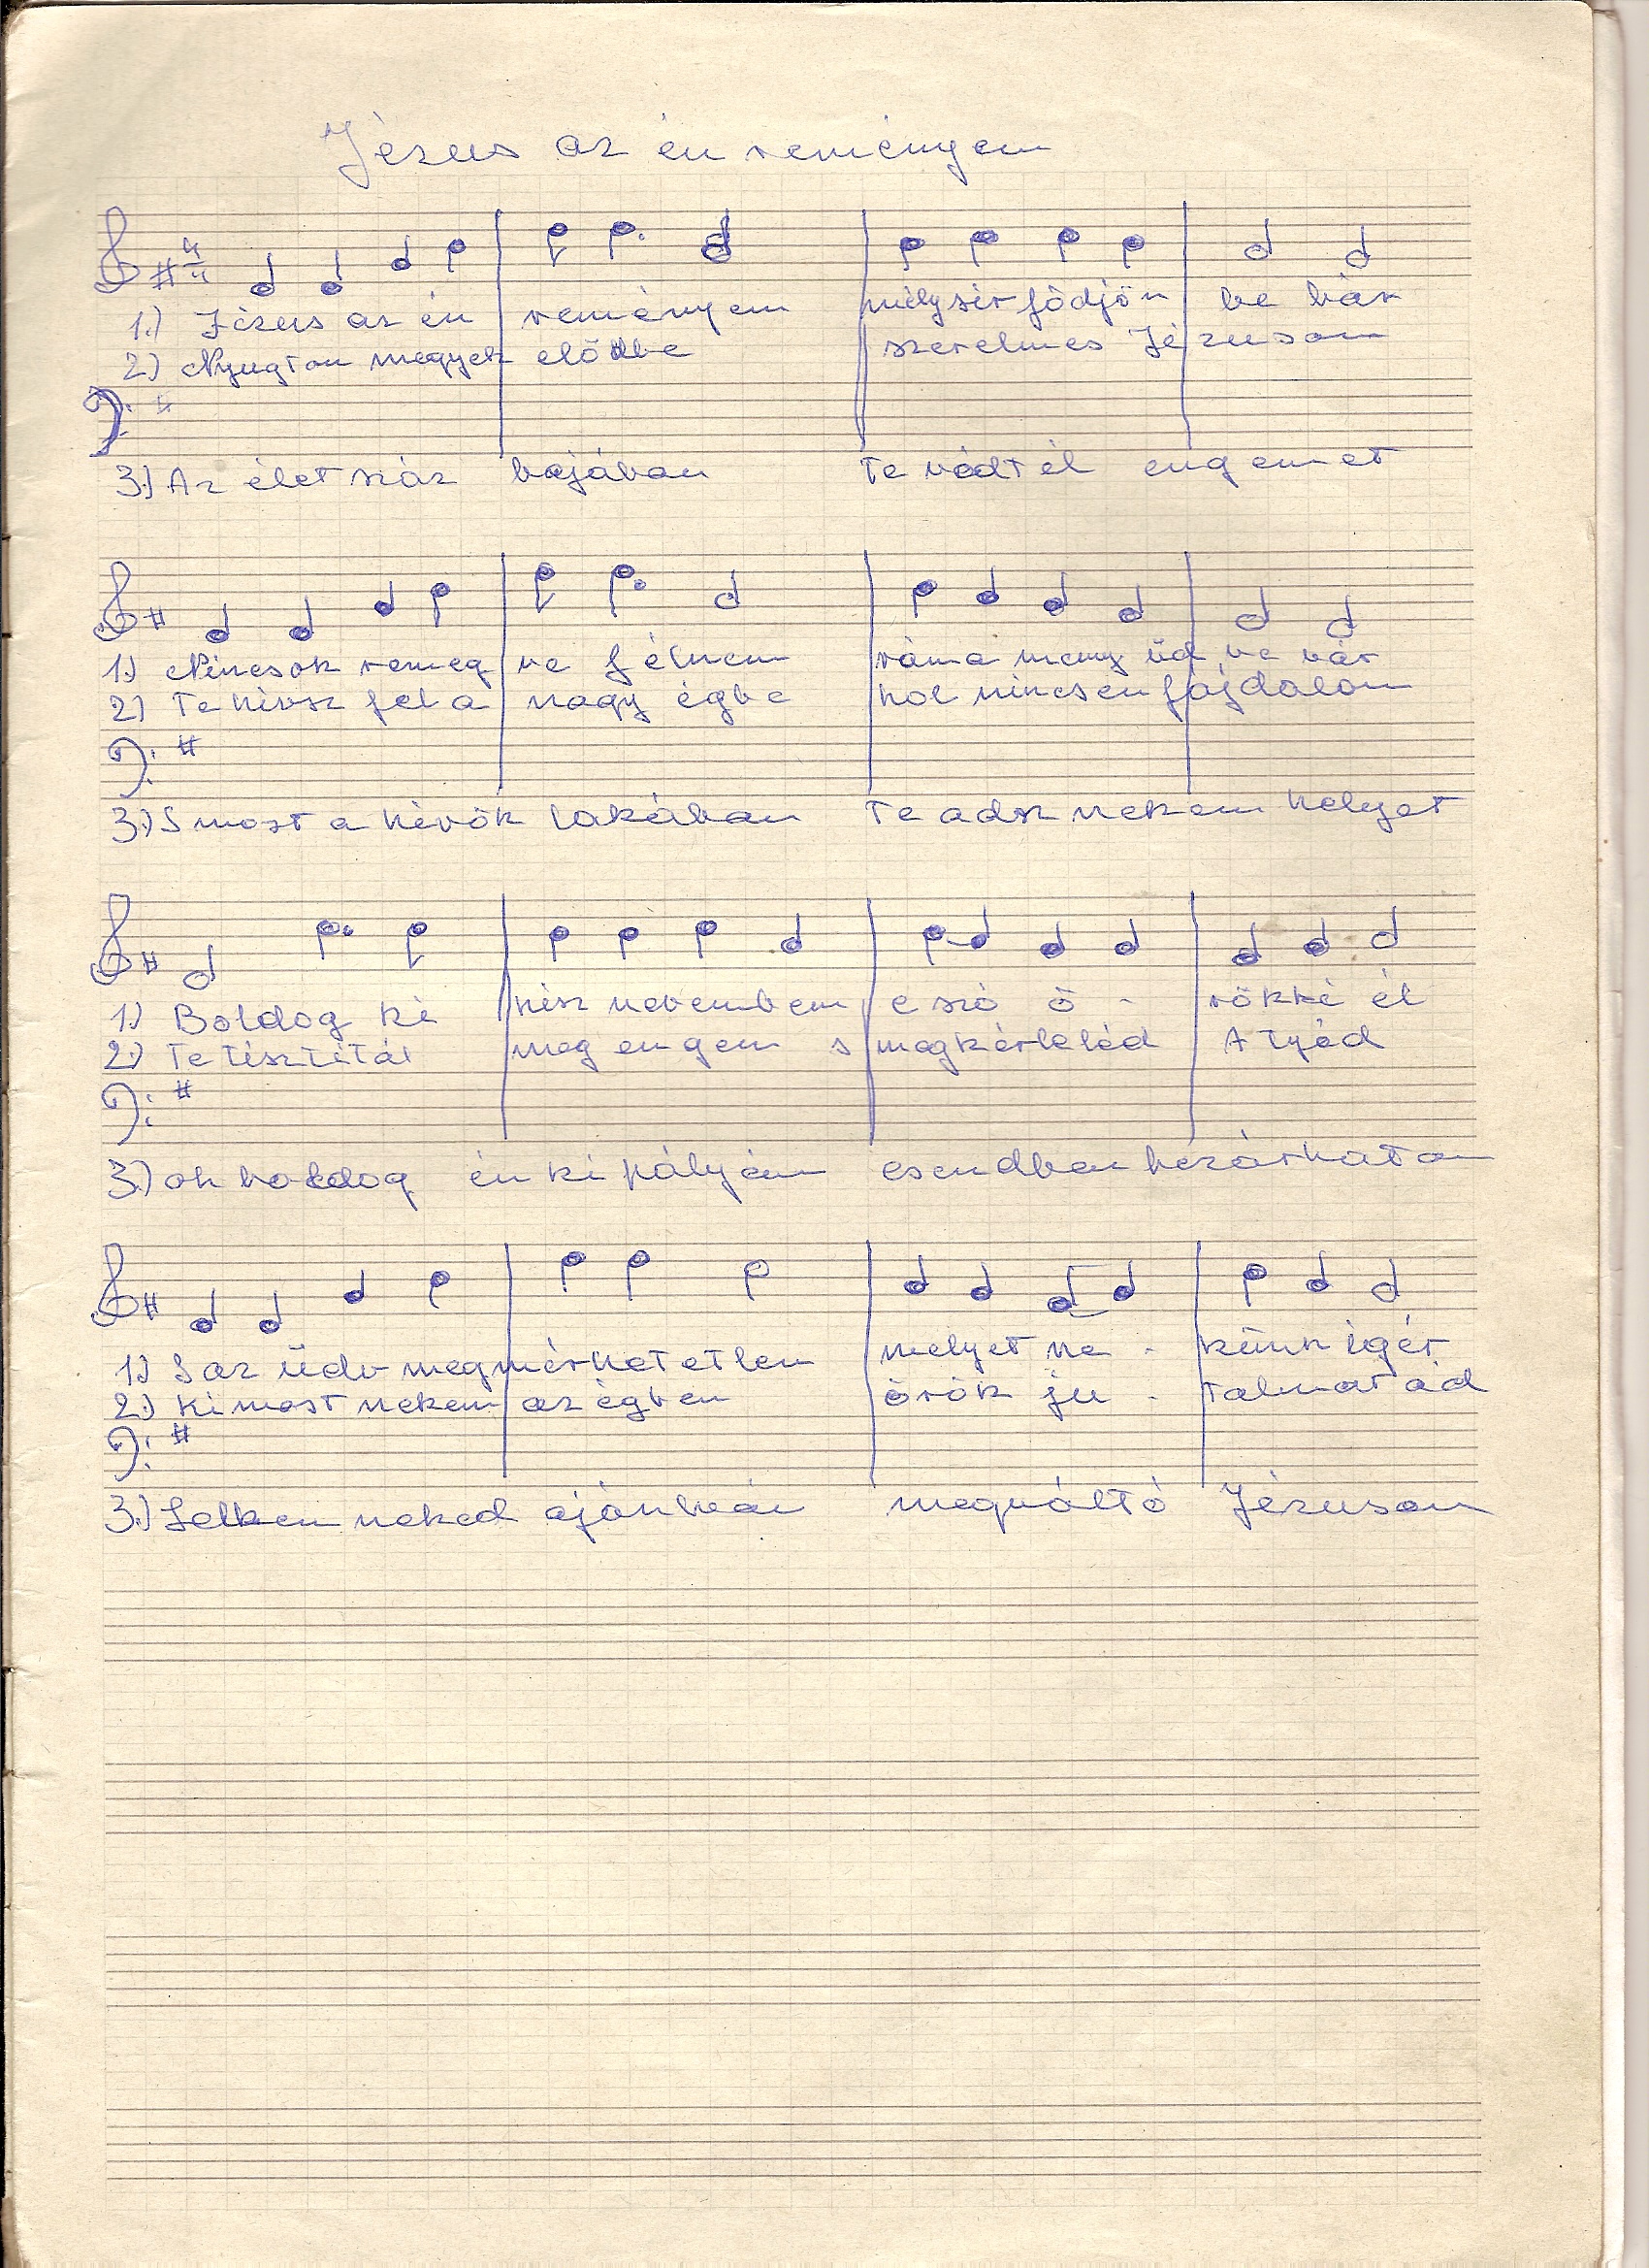 Jézus az én reményem
4/4
1.) Jézus az én reményem mély sír födjön be bár
2.) Nyugton megyek elődbe szerelmes Jézusom
3.) Az élet száz bajában te védtél engemet
1.) Nincs ok remegve félnem rám a meny üdve vár
2.) Te hívsz fel a nagy égbe hol nincsen fájdalom
3.) S most a hívők lakában te adsz nekem helyet
1.) Boldog ki hisz nevemben e szó ö - rökké él
2.) Te tisztítál meg engem s megkérleléd Atyád
3.) oh boldog én ki pályám csendben bezárhatom
1.) S az üdv megmérhetetlen melyet ne - künk igér
2.) Ki most nekem az égben örök ju - talmat ád
3.) Lelkem neked ajánlván megváltó Jézusom